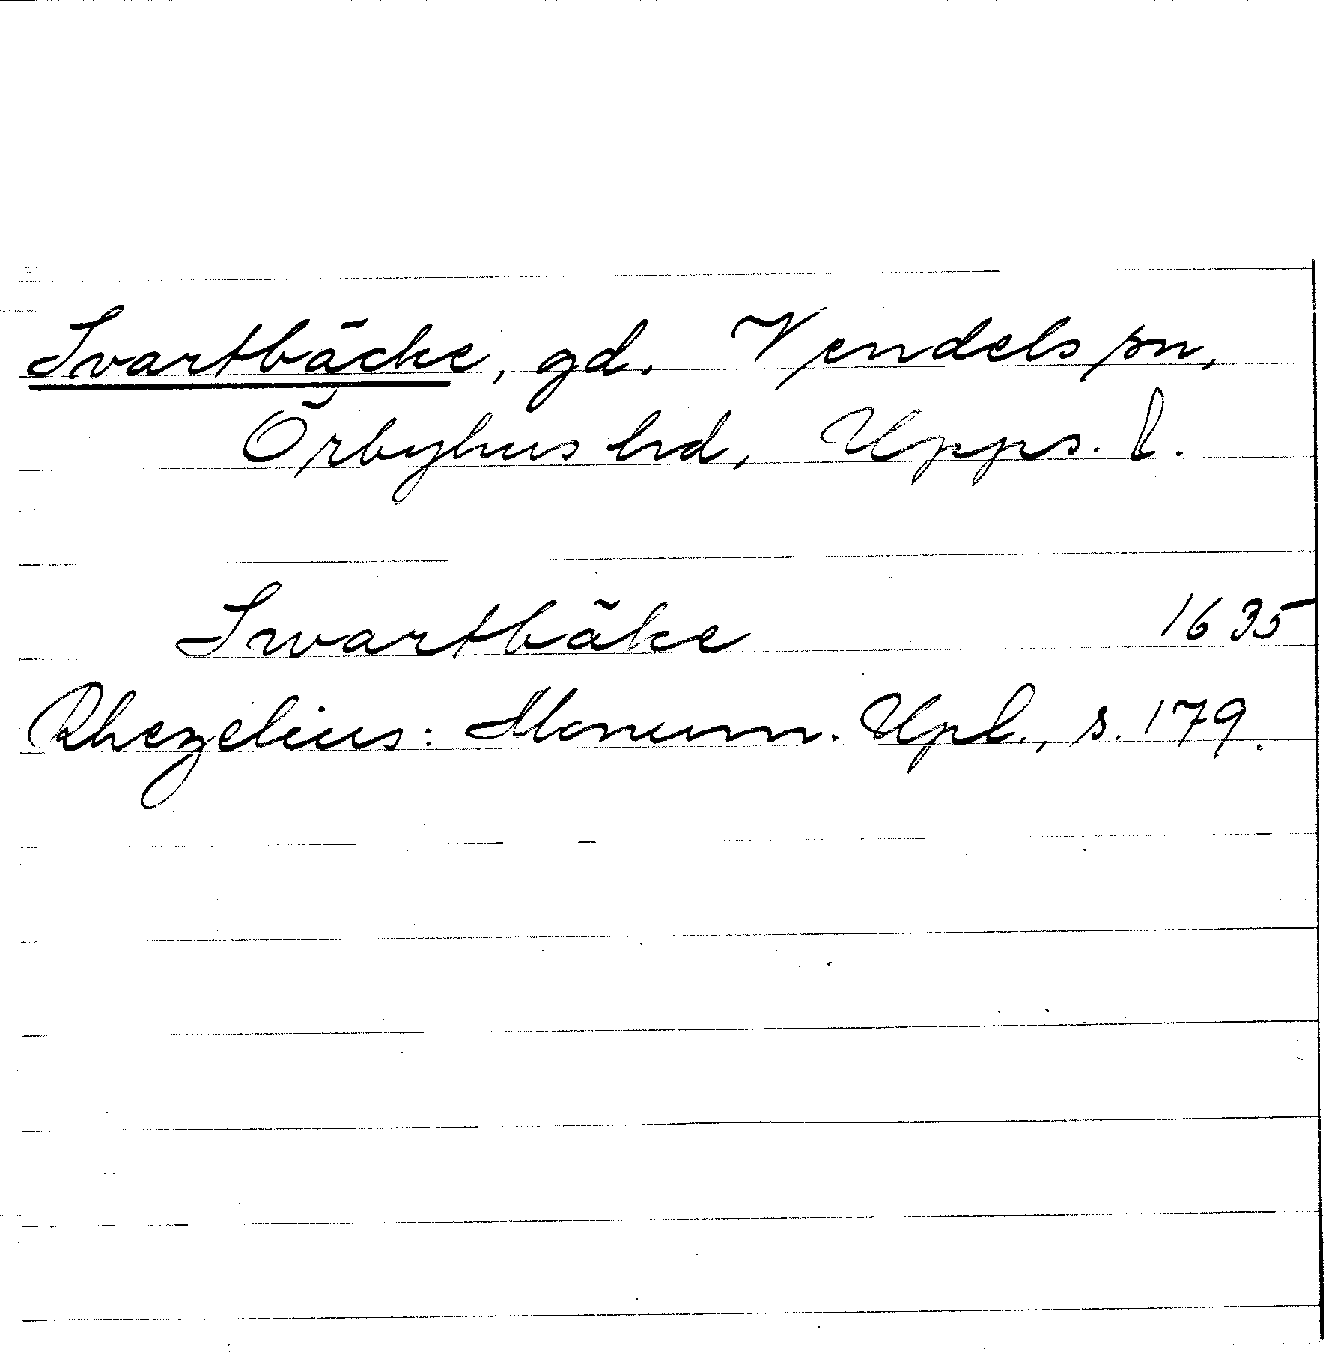 Svartbäcke, gd. Vendels sn,
Örbyhus hd, Upps. l.
Swartbäke 1635
Rhezelius: Monum. Upl., s. 179.